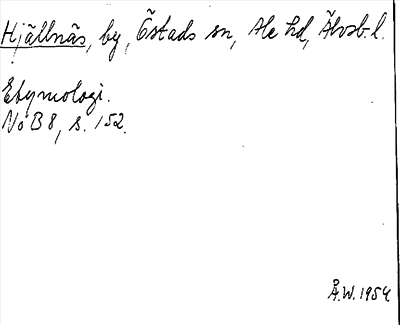 Hjällnäs, by, Östads sn, Ale hd, Älvsb. l.
Etymologi.
NoB 8, s. 152.
Å.W. 1954